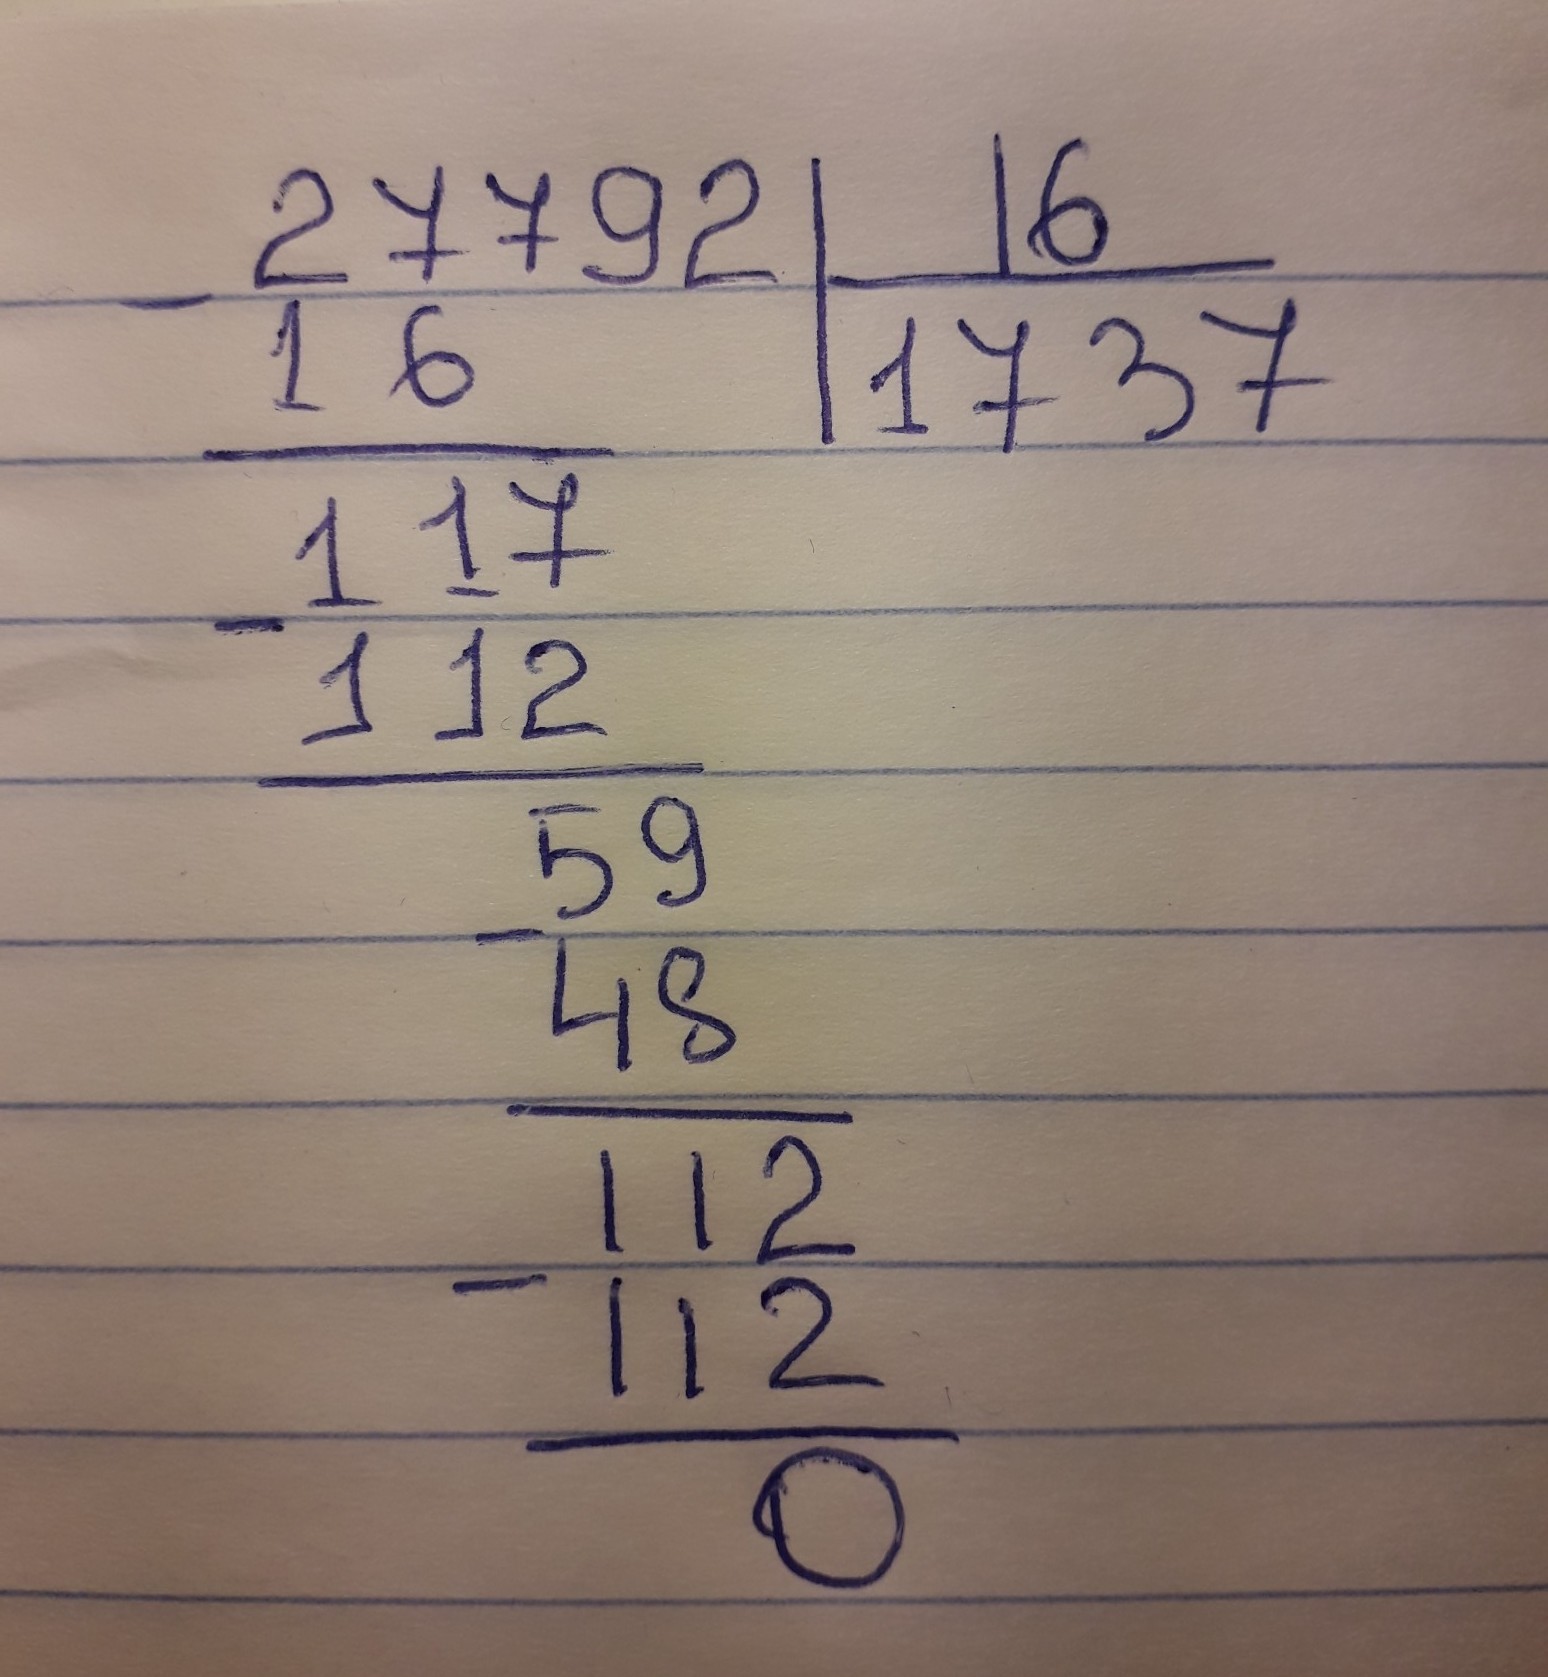 27792 16
- 16 1737
117
- 112
59
- 48
112
- 112
0